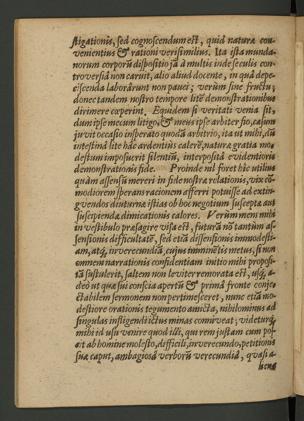 stigationis, sed cognoscendum est, quid naturæ con-
venientius & rationi verisimilius. Ita ista munda-
norum corporũ dispositio jã à multis inde seculis con-
troversiâ non caruit, alio aliud docente, in quâ depe-
ciscenda laborârunt non pauci; verùm sine fructu;
donec tandem nostro tempore litẽ demonstrationibus
dirimere cœperint. Equidem si veritati venia sit,
dum ipse mecum litigo, & meus ipse arbiter sio, casum
juvit occasio insperato quodã arbitrio, ita ut mihi, dũ
intestinâ lite hâc ardentiùs calerẽ, natura gratia mo-
destum imposuerit silentiũ, interpositâ evidentioris
demonstrationis fide. Proinde nil foret hîc utilius
quàm assensũ mereri in fide nostra relationis, vix cõ-
modiorem sperans racionem afferri potuisse ad extin-
guendos diuturnæ istias ob hoc negotium suscepta aut
suscipienda dimicationis calores. Verùm mens mihi
in vestibulo præsagire visa est, futurã nõ tantùm as-
sensionis difficultatẽ, sed etiã dissensionis immodesti-
am, atq; inverecundiã, cujus imminẽtis metus, si non
omnem narrationis confidentiam initio mihi proposi-
tâ sustulerit, saltem non leviter remorata est, usq; a-
deò ut quæ sui conscia apertũ & prima fronte conje-
ctabilem sermonem non pertimesceret, nunc etiã mo-
destiore orationis tegumento amicta, nihilominus ad
singulas instigendi ictus minas comiveat; videturq;
mihi id usu venire quod illi, qui rem justam cum po-
ait ab homine molesto, difficili, inverecundo, petitionis
suæ caput, ambagiosâ verborũ verecundiâ, quasi a-
liena